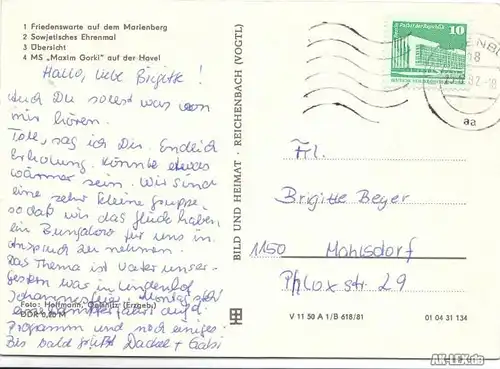 1 Friedenswarte auf dem Marienberg
2 Sowjetisches Ehrenmal
3 Übersicht
4 MS „Maxim Gorki" auf der Havel
Hallo, liebe Birgitt!
Auch Du sollst was von
mir hören.
Toll, sag ich Dir. Endlich
Erholung. Könnte etwas
wärmer sein. Wir sind
eine sehr kleine Gruppe,
so daß wir das Glück haben,
ein Bungalow für uns in
Anspruch zu nehmen.
Das Thema ist Vater unser.
Gestern war in Lindenhof
Johannesfeier, Montag steht
eine Dampferfahrt auf d.
Programm und noch einiges!
Bis bald grüßt Dackel + Gabi
Foto: Hoffmann, Oelsnitz (Erzgeb.)
DDR 0,20 M
BILD UND HEIMAT · REICHENBACH (VOGTL)
Palast der Republik
10
DDR
aa
Frl.
Brigitte Beyer
1150 Mahlsdorf
Phloxstr. 29
V 11 50 A 1/B 618/81
01 04 31 134
AK-LEX.de